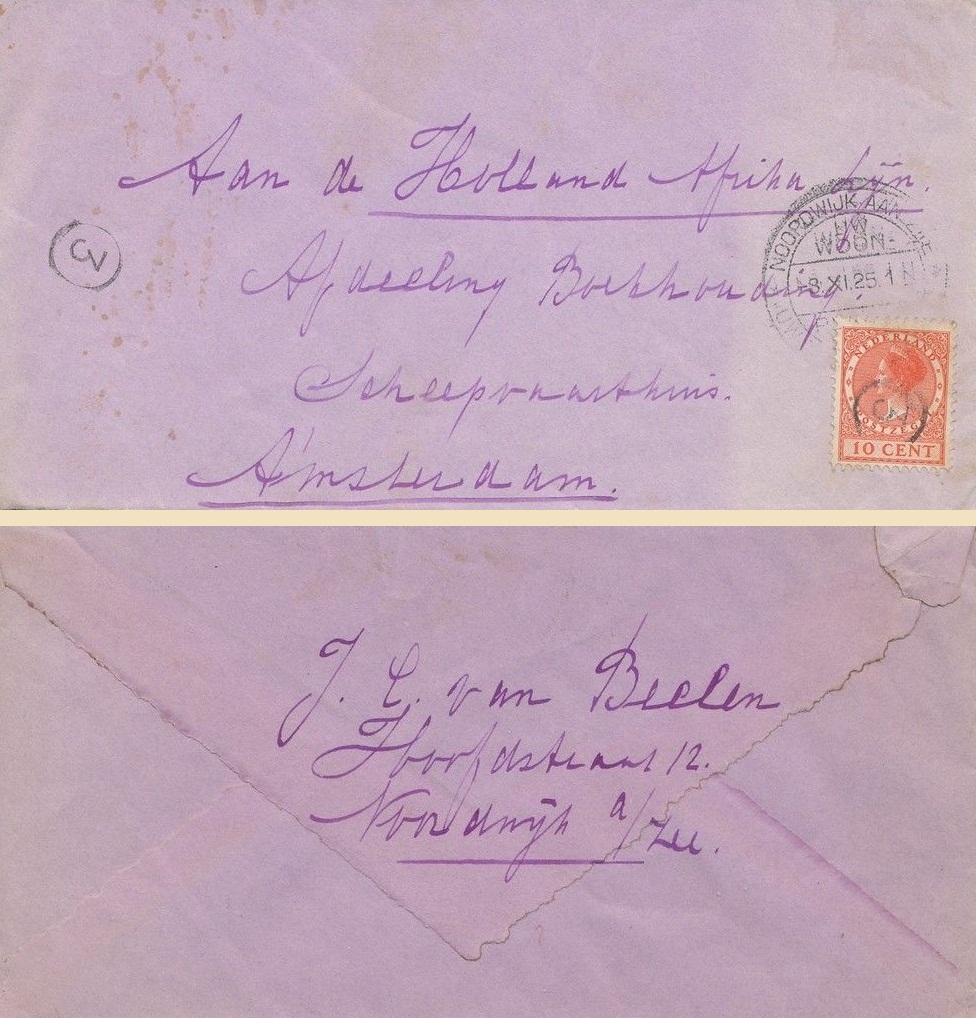 Aan de Holland Afrika Lijn.
Afdeeling Boekhouding.
Scheepvaarthuis.
A'msterdam.
NOORDWIJK AAN
UW
WOON-
-8.XI.25.1 N
NEDERLAND
POSTZEGEL
10 CENT
J. C. van Beelen
Hoofdstraat 12.
Noordwijk a/zee.